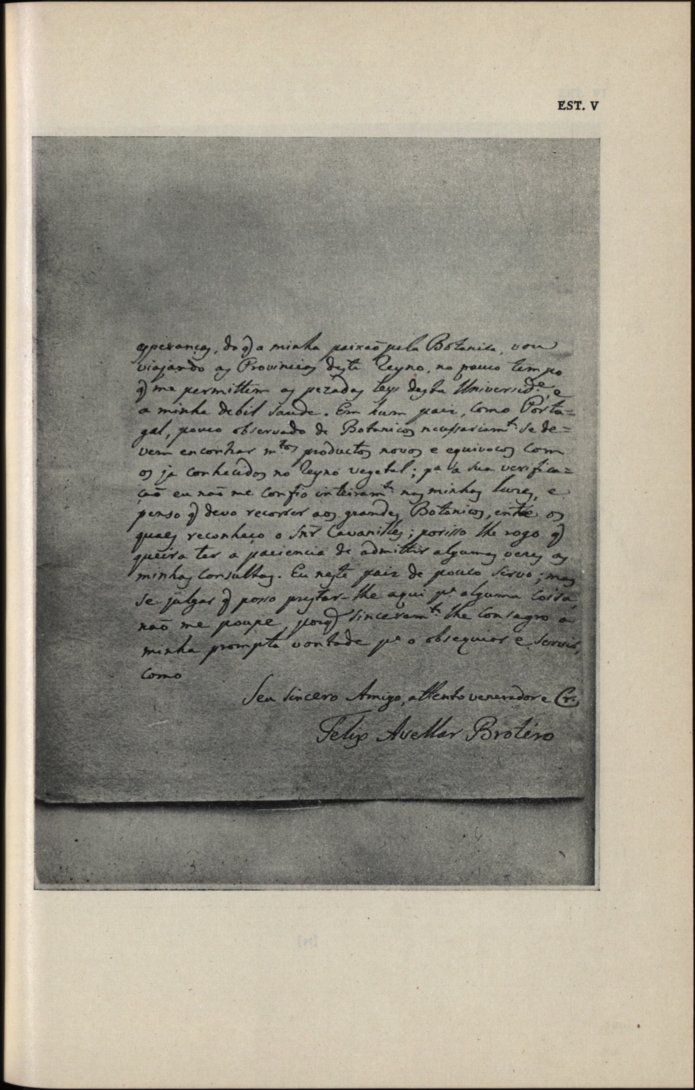 EST. V
esperanças, do q̃ a minha paixaõ pela Botanica, vou
viajando as Provincias deste Reyno, no pouco tempo
q̃ me permittem as pezadas leys desta Universid.e, e
a minha debil saude. Em hum paiz, como Portu=
gal, pouco observado de Botanicos necessariam.te se de=
vem encontrar m.tos productos novos e equivocos com
os ja conhecidos no Reyno vegetal; p.a a sua verifica=
çaõ eu naõ me confio inteiram.te nas minhas luzes, e
penso q̃ devo recorrer aos grandes Botanicos, entre os
quaes reconheço o Snr̃ Cavanilles; porisso lhe rogo q̃
queira ter a paciencia de admittir algumas vezes as
minhas consultas. Eu neste paiz de pouco sirvo; mas
se julgar q̃ posso prestar-lhe aqui p.a alguma coisa,
naõ me poupe, porq̃ sinceram.te lhe consagro a
minha prompta vontade p.a o obsequiar e servir,
como
Seu sincero Amigo, attento venerador e Cr.
Felix Avellar Brotéro